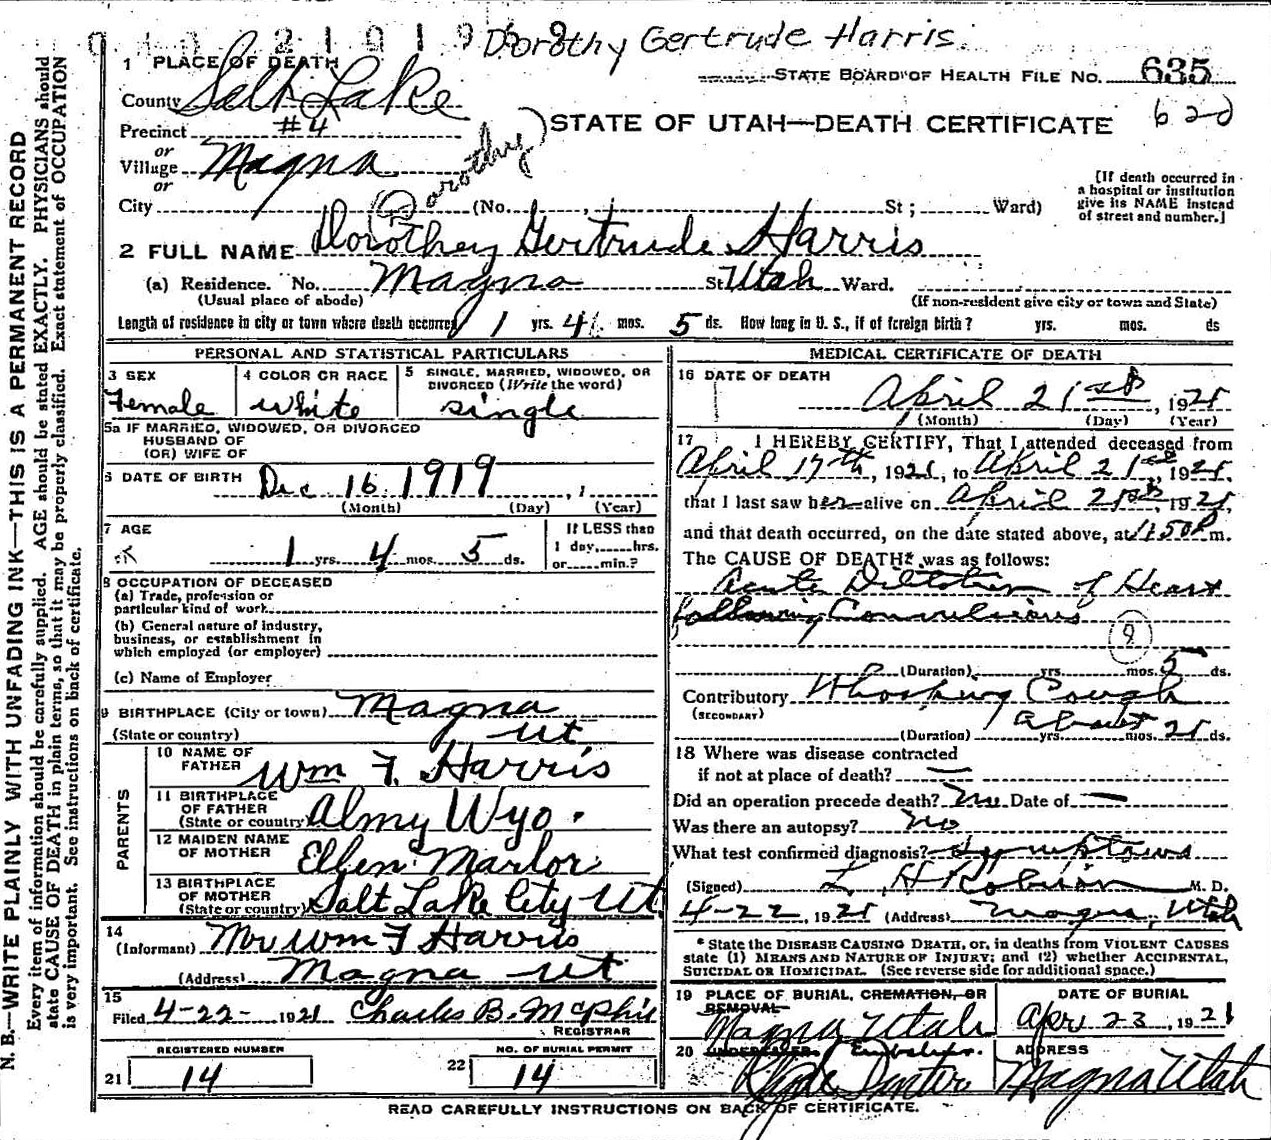 2 1 0 1 9 Dorothy Gertrude Harris
1 PLACE OF DEATH
STATE BOARD OF HEALTH FILE NO. 635
County Salt Lake
620
Precinct #4
STATE OF UTAH—DEATH CERTIFICATE
or
Village Magna
or
Dorothy
[If death occurred in
a hospital or institution
give its NAME instead
of street and number.]
City (No. , St; Ward)
2 FULL NAME Dorothey Gertrude Harris
(a) Residence. No. Magna St Utah Ward.
(Usual place of abode) (If non-resident give city or town and State)
Length of residence in city or town where death occurred 1 yrs. 4 mos. 5 ds. How long in U. S., if of foreign birth? yrs. mos. ds
PERSONAL AND STATISTICAL PARTICULARS
3 SEX 4 COLOR OR RACE 5 SINGLE, MARRIED, WIDOWED, OR
DIVORCED (Write the word)
Female White single
5a IF MARRIED, WIDOWED, OR DIVORCED
HUSBAND OF
(OR) WIFE OF
6 DATE OF BIRTH Dec 16 1919
(Month) (Day) (Year)
7 AGE If LESS than
1 day,.....hrs.
1 yrs. 4 mos. 5 ds. or.....min.?
8 OCCUPATION OF DECEASED
(a) Trade, profession or
particular kind of work
(b) General nature of industry,
business, or establishment in
which employed (or employer)
(c) Name of Employer
9 BIRTHPLACE (City or town) Magna
(State or country) Ut
PARENTS
10 NAME OF
FATHER Wm F. Harris
11 BIRTHPLACE
OF FATHER
(State or country) Almy Wyo.
12 MAIDEN NAME
OF MOTHER Ellen Marlor
13 BIRTHPLACE
OF MOTHER
(State or country) Salt Lake City Ut.
14
(Informant) Mr Wm F Harris
(Address) Magna Ut
15
Filed 4-22- 1921 Charles B. McPhie
REGISTRAR
REGISTERED NUMBER NO. OF BURIAL PERMIT
21 14 22 14
MEDICAL CERTIFICATE OF DEATH
16 DATE OF DEATH
April 21st, 1921
(Month) (Day) (Year)
17 I HEREBY CERTIFY, That I attended deceased from
April 17th, 1921, to April 21st, 1921,
that I last saw her alive on April 21st, 1921,
and that death occurred, on the date stated above, at 11.50 P m.
The CAUSE OF DEATH* was as follows:
Acute Dilitation of Heart
following Convulsions
9
(Duration) yrs. mos. 5 ds.
Contributory Whooping Cough
(SECONDARY) about
(Duration) yrs. mos. 21 ds.
18 Where was disease contracted
if not at place of death? —
Did an operation precede death? No Date of —
Was there an autopsy? no
What test confirmed diagnosis? symptoms
(Signed) L H Robinson M. D.
4-22, 1921 (Address) Magna, Utah
* State the DISEASE CAUSING DEATH, or, in deaths from VIOLENT CAUSES
state (1) MEANS AND NATURE OF INJURY; and (2) whether ACCIDENTAL,
SUICIDAL OR HOMICIDAL. (See reverse side for additional space.)
19 PLACE OF BURIAL, CREMATION, OR
REMOVAL DATE OF BURIAL
Magna Utah Apr 23, 1921
20 UNDERTAKER Embalmer. ADDRESS
Magna Utah
READ CAREFULLY INSTRUCTIONS ON BACK OF CERTIFICATE.
N. B.—WRITE PLAINLY WITH UNFADING INK—THIS IS A PERMANENT RECORD
Every item of information should be carefully supplied. AGE should be stated EXACTLY. PHYSICIANS should
state CAUSE OF DEATH in plain terms, so that it may be properly classified. Exact statement of OCCUPATION
is very important. See instructions on back of certificate.